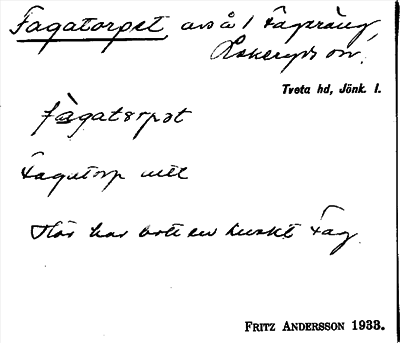 Fagatorpet, avs å 1 Fageräng,
Lekeryds sn.
Tveta hd, Jönk. l.
fàgatɛrpət
Fagatorp utt
Här har bott en knekt Fag.
FRITZ ANDERSSON 1933.